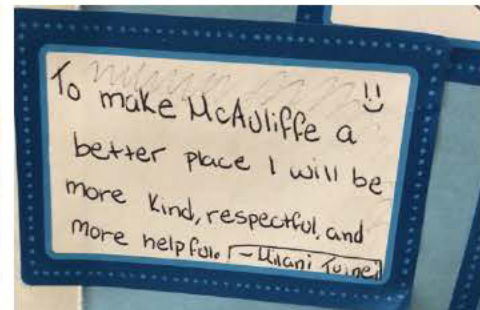 To make McAuliffe a
better place I will be
more kind, respectful, and
more helpful. -